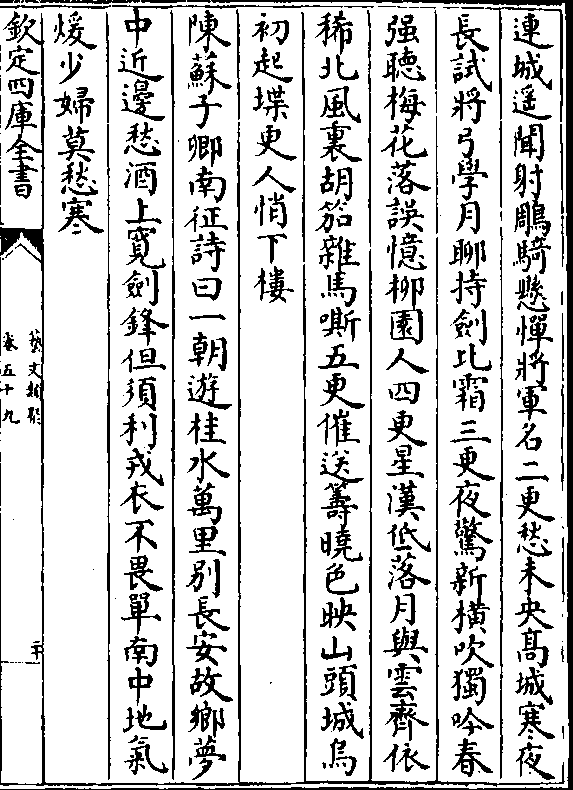 連城遥聞射鵰騎懸憚將軍名二更愁未央髙城寒夜
長試將弓學月聊持劍比霜三更夜驚新横吹獨吟春
强聽梅花落誤憶栁園人四更星漢低落月與雲齊依
稀北風裏胡笳雜馬嘶五更催送籌曉色映山頭城烏
初起堞更人悄下樓
陳蘇子卿南征詩曰一朝遊桂水萬里别長安故鄉夢
中近邊愁酒上寛劍鋒但須利戎衣不畏單南中地氣
煖少婦莫愁寒
欽定四庫全書
藝文類聚
卷五十九
二十